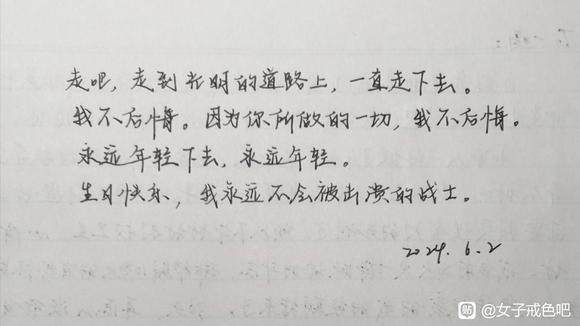 走吧，走到光明的道路上，一直走下去。
我不后悔。因为你所做的一切，我不后悔。
永远年轻下去，永远年轻。
生日快乐，我永远不会被出卖的战士。
2024.6.2
贴 @女子戒色吧